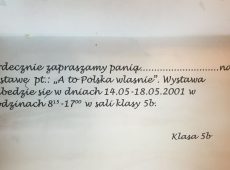 rdecznie zapraszamy panią.....................na
stawę pt.: „A to Polska wlasnie”. Wystawa
będzie się w dniach 14.05-18.05.2001 w
dzinach 8¹⁵-17⁰⁰ w sali klasy 5b.
Klasa 5b